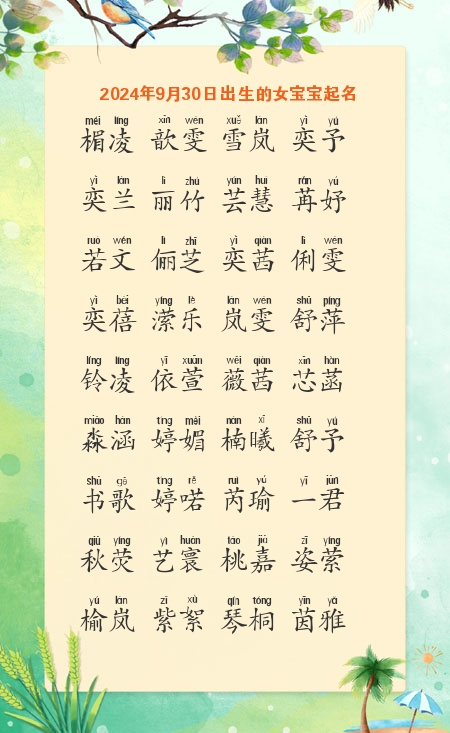 2024年9月30日出生的女宝宝起名
méi líng xīn wén xuě lán yì yú
楣凌 歆雯 雪岚 奕予
yì lán lì zhú yún huì rǎn yú
奕兰 丽竹 芸慧 苒妤
ruò wén lì zhī yì qiàn lì wén
若文 俪芝 奕茜 俐雯
yì bèi yíng lè lán wén shū píng
奕蓓 潆乐 岚雯 舒萍
líng líng yī xuān wēi qiàn xīn hàn
铃凌 依萱 薇茜 芯菡
miǎo hán tíng mèi nán xī shū yú
淼涵 婷媚 楠曦 舒予
shū gē tíng rě ruì yú yī jūn
书歌 婷喏 芮瑜 一君
qiū yíng yì huán táo jiā zī yíng
秋荧 艺寰 桃嘉 姿萦
yú lán zǐ xù qín tóng yīn yǎ
榆岚 紫絮 琴桐 茵雅